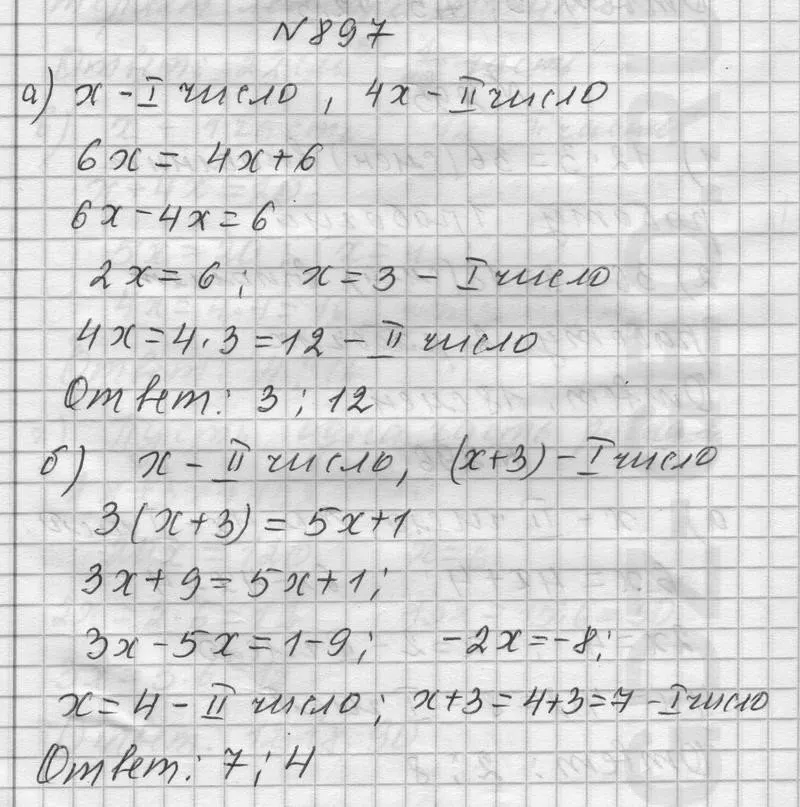 №897
а) x - I число, 4x - II число
6x = 4x+6
6x-4x=6
2x=6; x=3 - I число
4x=4·3=12 - II число
Ответ: 3; 12
б) x - II число, (x+3) - I число
3(x+3)=5x+1
3x+9=5x+1;
3x-5x=1-9; -2x=-8;
x=4 - II число; x+3=4+3=7 - I число
Ответ: 7; 4